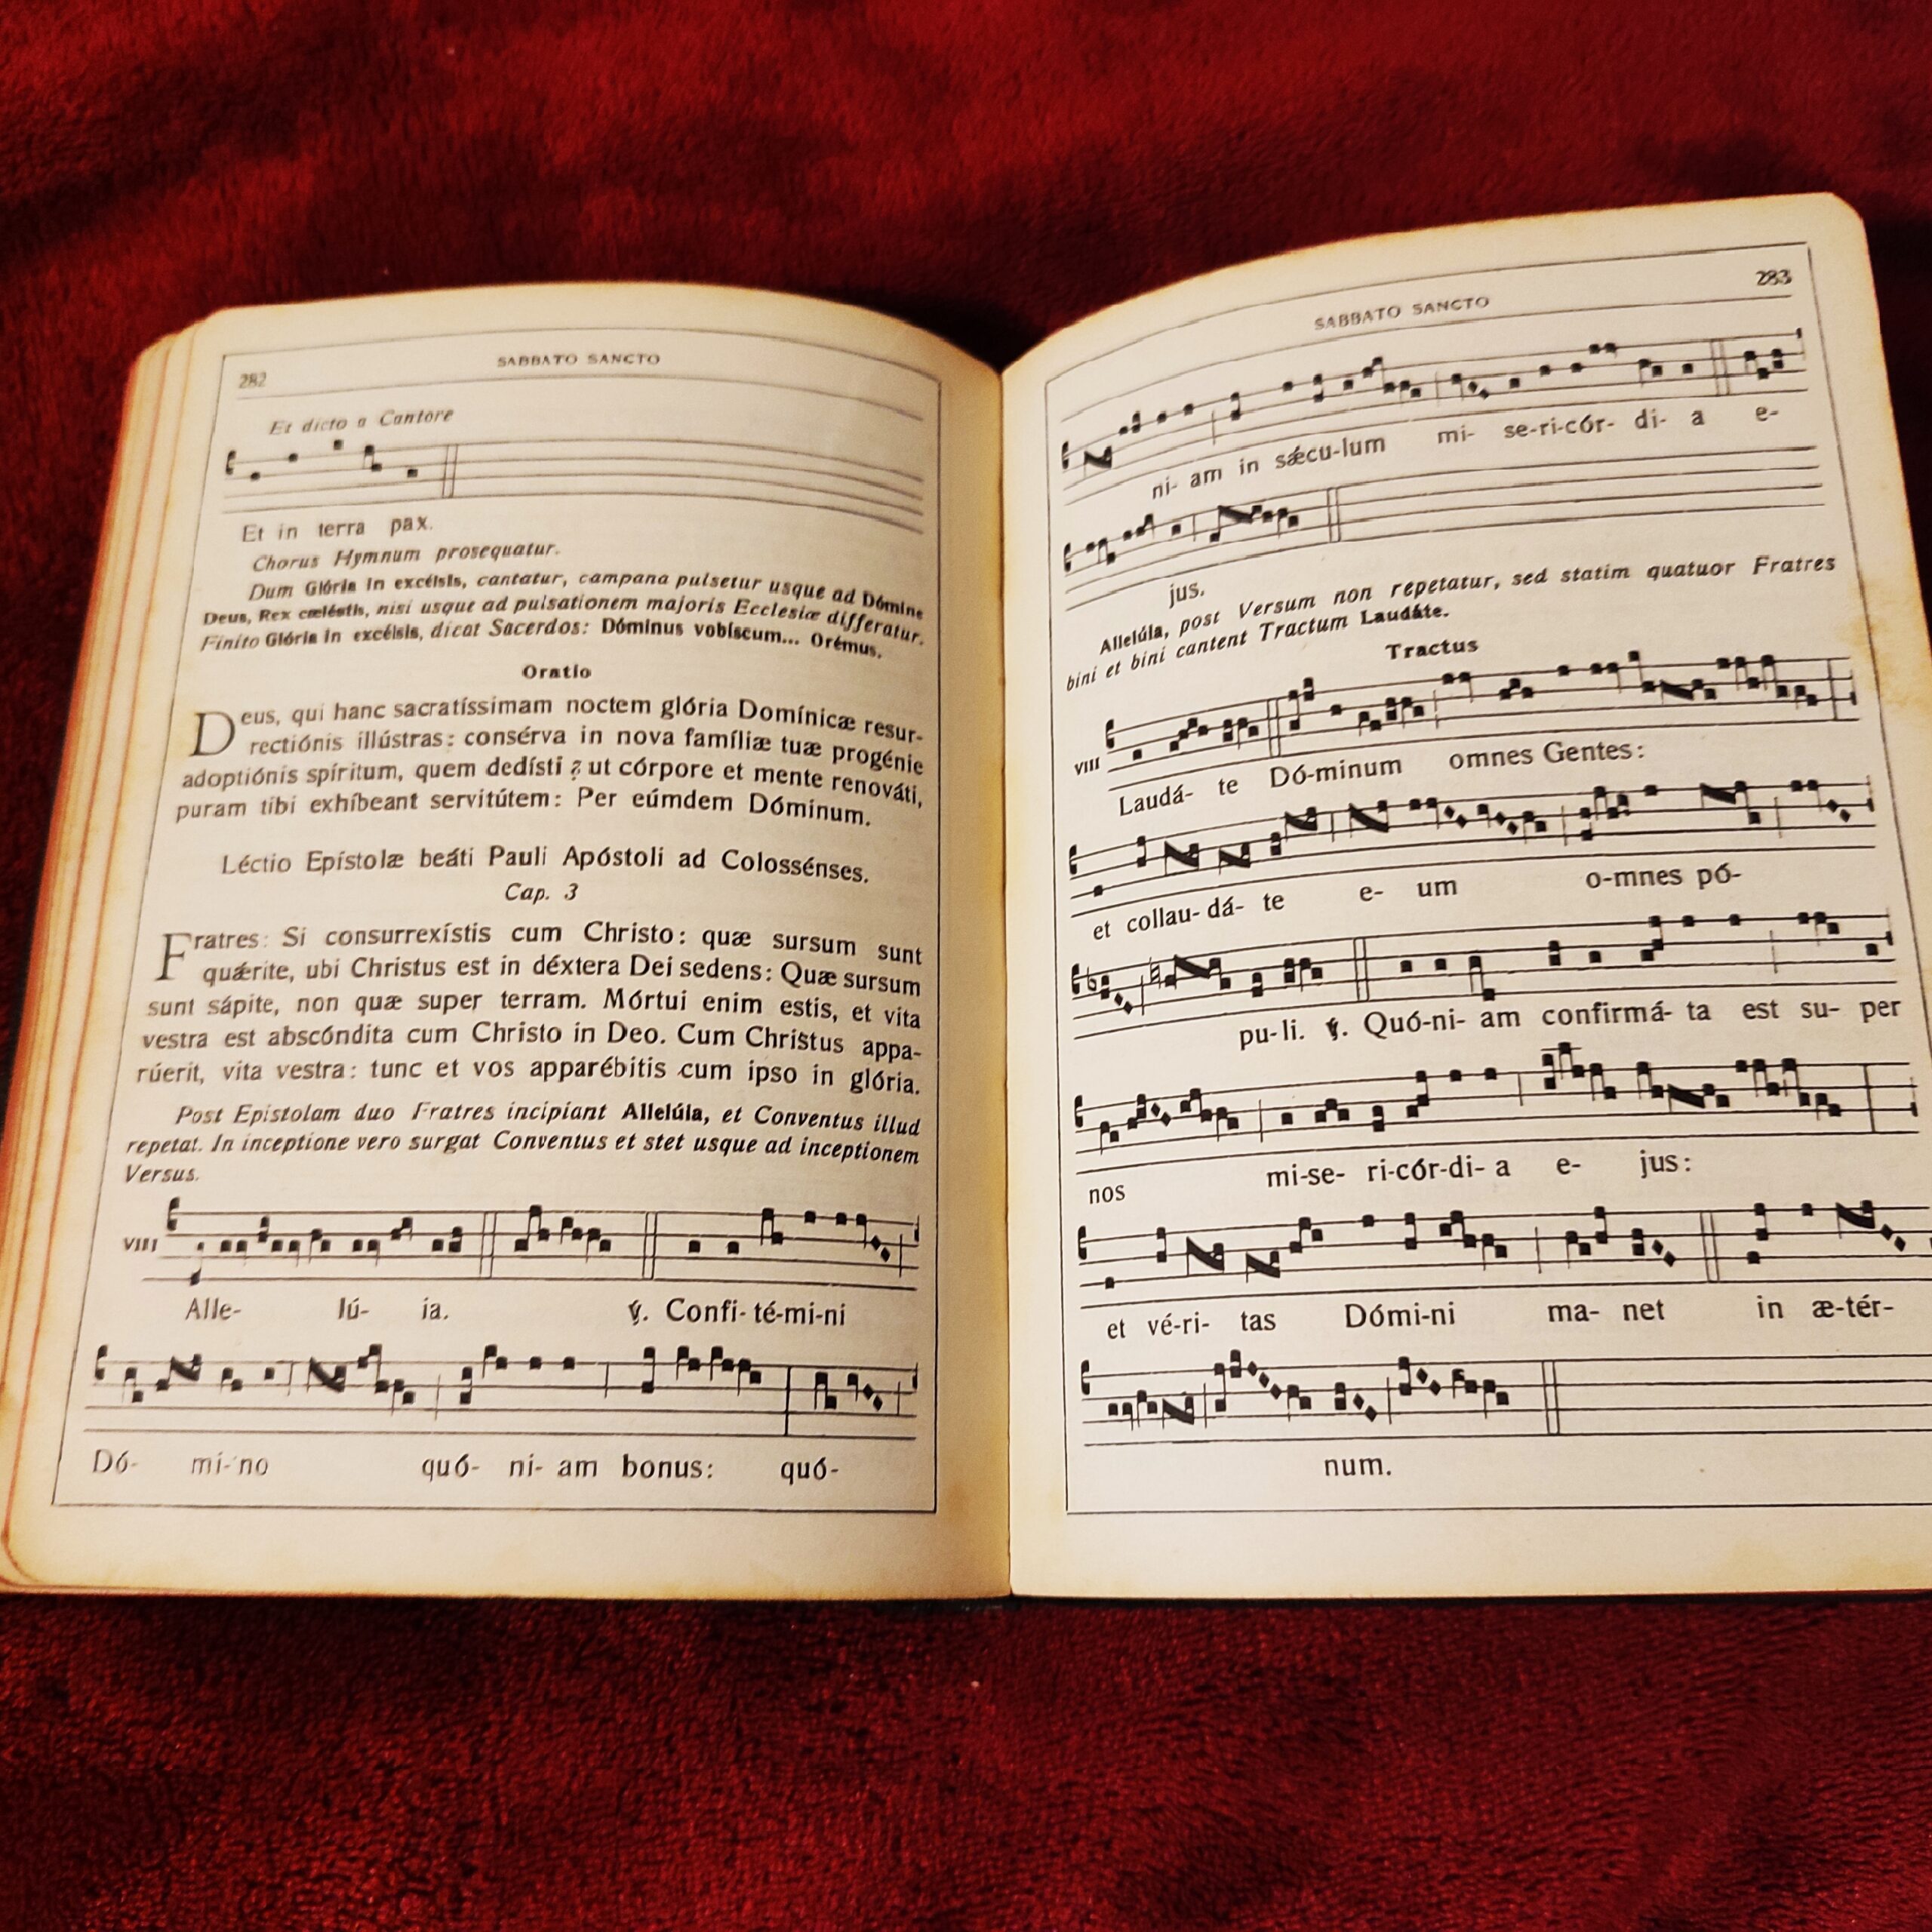 282
SABBATO SANCTO
Et dicto a Cantore
Et in terra pax.
Chorus Hymnum prosequatur.
Dum Glória in excélsis, cantatur, campana pulsetur usque ad Dómine
Deus, Rex cœléstis, nisi usque ad pulsationem majoris Ecclesiæ differatur.
Finito Glória in excélsis, dicat Sacerdos: Dóminus vobíscum... Orémus.
Oratio
Deus, qui hanc sacratíssimam noctem glória Domínicæ resur-
rectiónis illústras: consérva in nova famíliæ tuæ progénie
adoptiónis spíritum, quem dedísti ; ut córpore et mente renováti,
puram tibi exhíbeant servitútem: Per eúmdem Dóminum.
Léctio Epístolæ beáti Pauli Apóstoli ad Colossénses.
Cap. 3
Fratres: Si consurrexístis cum Christo: quæ sursum sunt
quǽrite, ubi Christus est in déxtera Dei sedens: Quæ sursum
sunt sápite, non quæ super terram. Mórtui enim estis, et vita
vestra est abscóndita cum Christo in Deo. Cum Christus appa-
rúerit, vita vestra: tunc et vos apparébitis cum ipso in glória.
Post Epistolam duo Fratres incipiant Allelúia, et Conventus illud
repetat. In inceptione vero surgat Conventus et stet usque ad inceptionem
Versus.
VIII
Alle- lú- ia. ℣. Confi-té-mi-ni
Dó- mi-no quó- ni- am bonus: quó-
SABBATO SANCTO
283
ni- am in sǽcu-lum mi- se-ri-cór- di- a e-
jus.
Allelúia, post Versum non repetatur, sed statim quatuor Fratres
bini et bini cantent Tractum Laudáte.
Tractus
VIII
Laudá- te Dó-minum omnes Gentes:
et collau-dá- te e- um o-mnes pó-
pu-li. ℣. Quó-ni- am confirmá- ta est su- per
nos mi-se- ri-cór-di- a e- jus:
et vé-ri- tas Dómi-ni ma- net in æ-tér-
num.